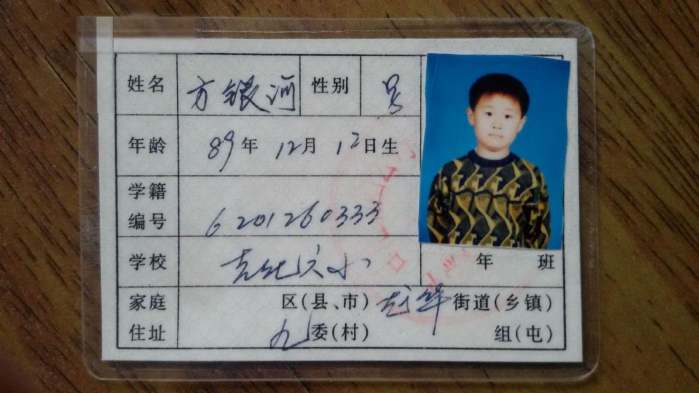 姓名 方银河 性别 男
年龄 89年 12月 12日生
学籍
编号 6201260333
学校 吉化六小 年 班
家庭 区(县、市) 龙华 街道(乡镇)
住址 九委(村) 组(屯)